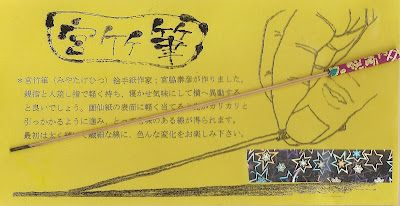 宮竹筆
＊宮竹筆（みやたけひつ）絵手紙作家：宮脇
が作りました。
親指と人差し指で軽く持ち、寝かせ気味にして横へ異動する
と良いでしょう。画仙紙の表面に軽く当てる
カリカリと
引っかかるように進み、
味のある線が得られます。
最初は太く
繊細な線に、色んな変化をお楽しみ下さい。